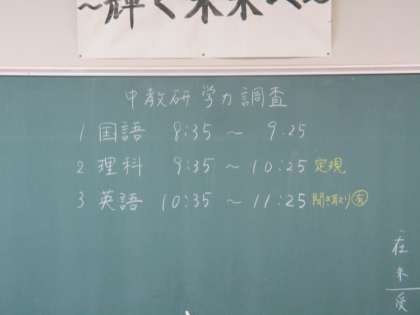 〜輝く未来へ〜
中教研 学力調査
1 国語 8:35 〜 9.25
2 理科 9:35 〜 10:25 定規
3 英語 10:35 〜 11:25 聞き取り有
在
来
受